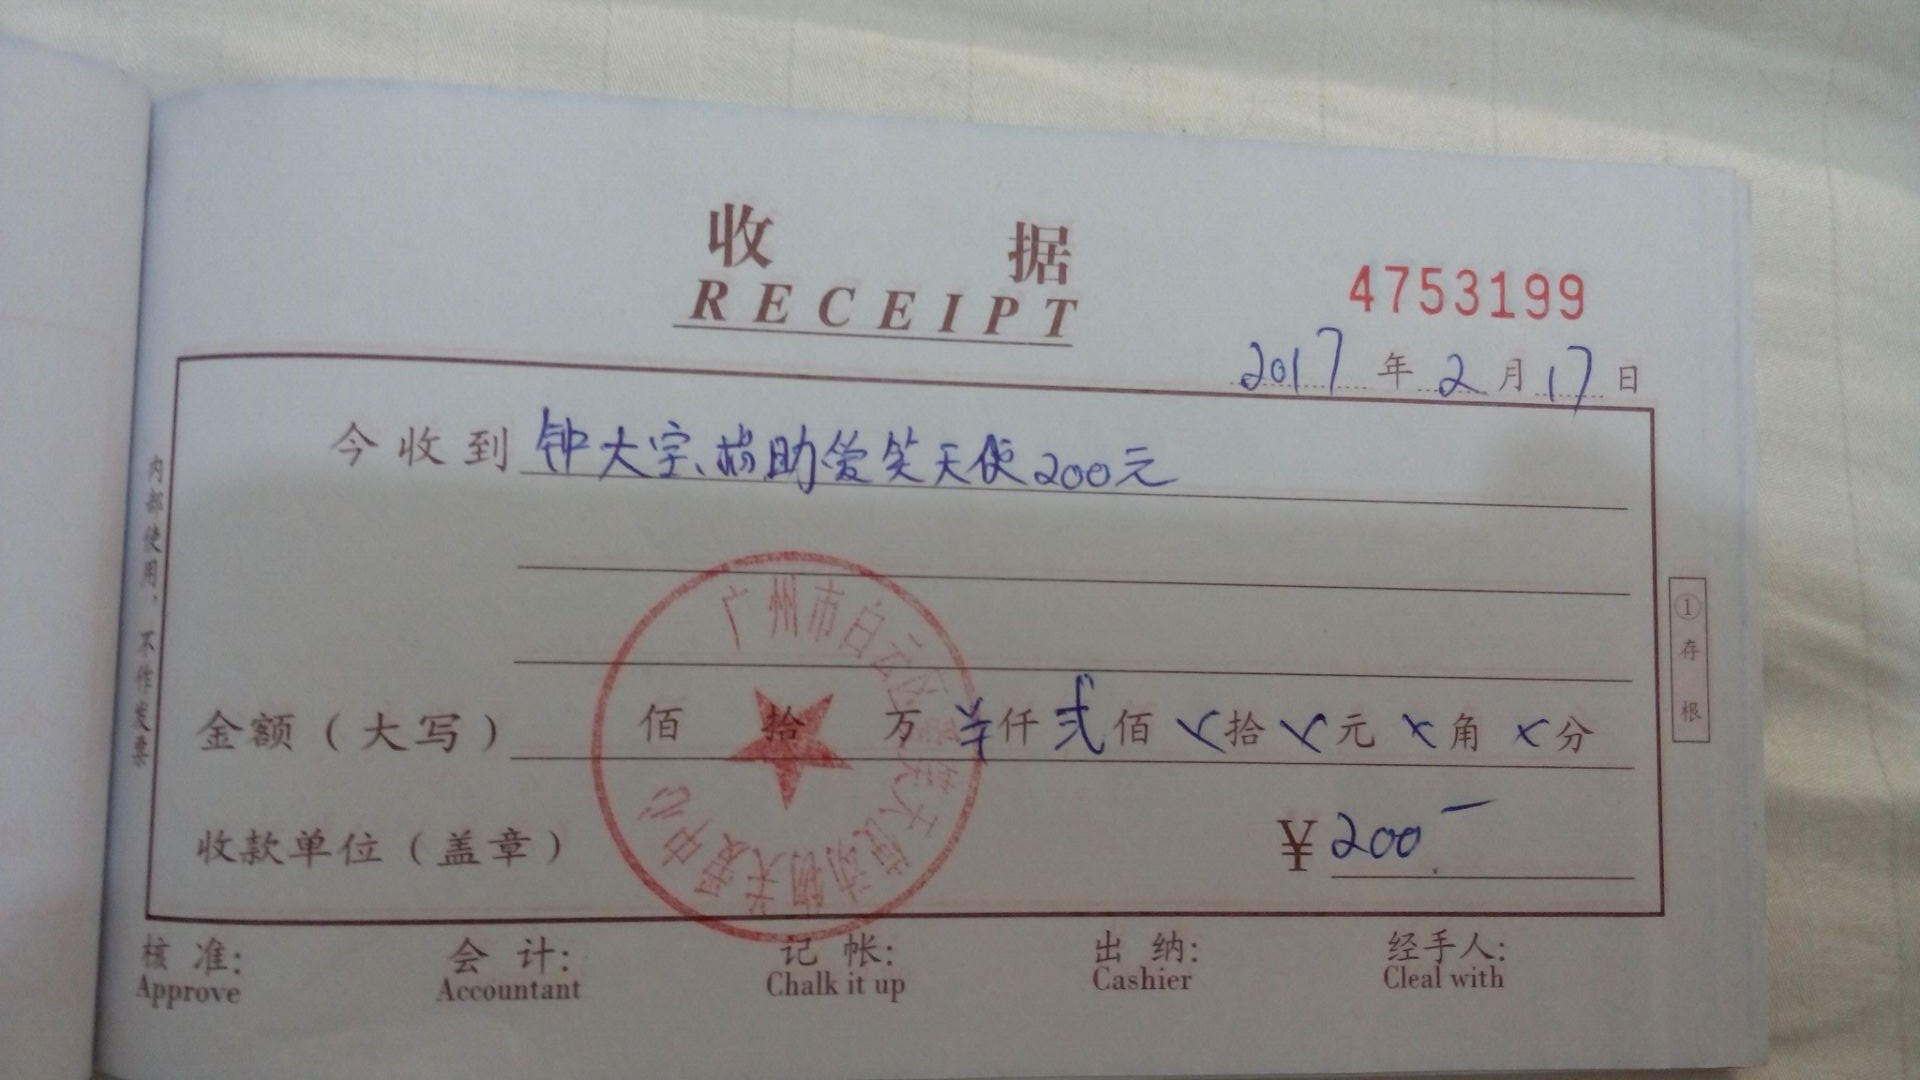 收据
RECEIPT
4753199
2017年2月17日
今收到 钟大宇、捐助爱笑天使200元
金额(大写) 佰 拾 万 ¥仟 弍佰 ×拾 ×元 ×角 ×分
收款单位(盖章) ¥200.—
广州市白云区爱笑天使动物关爱中心
内部使用,不作发票
①存根
核 准: 会 计: 记 帐: 出 纳: 经手人:
Approve Accountant Chalk it up Cashier Cleal with